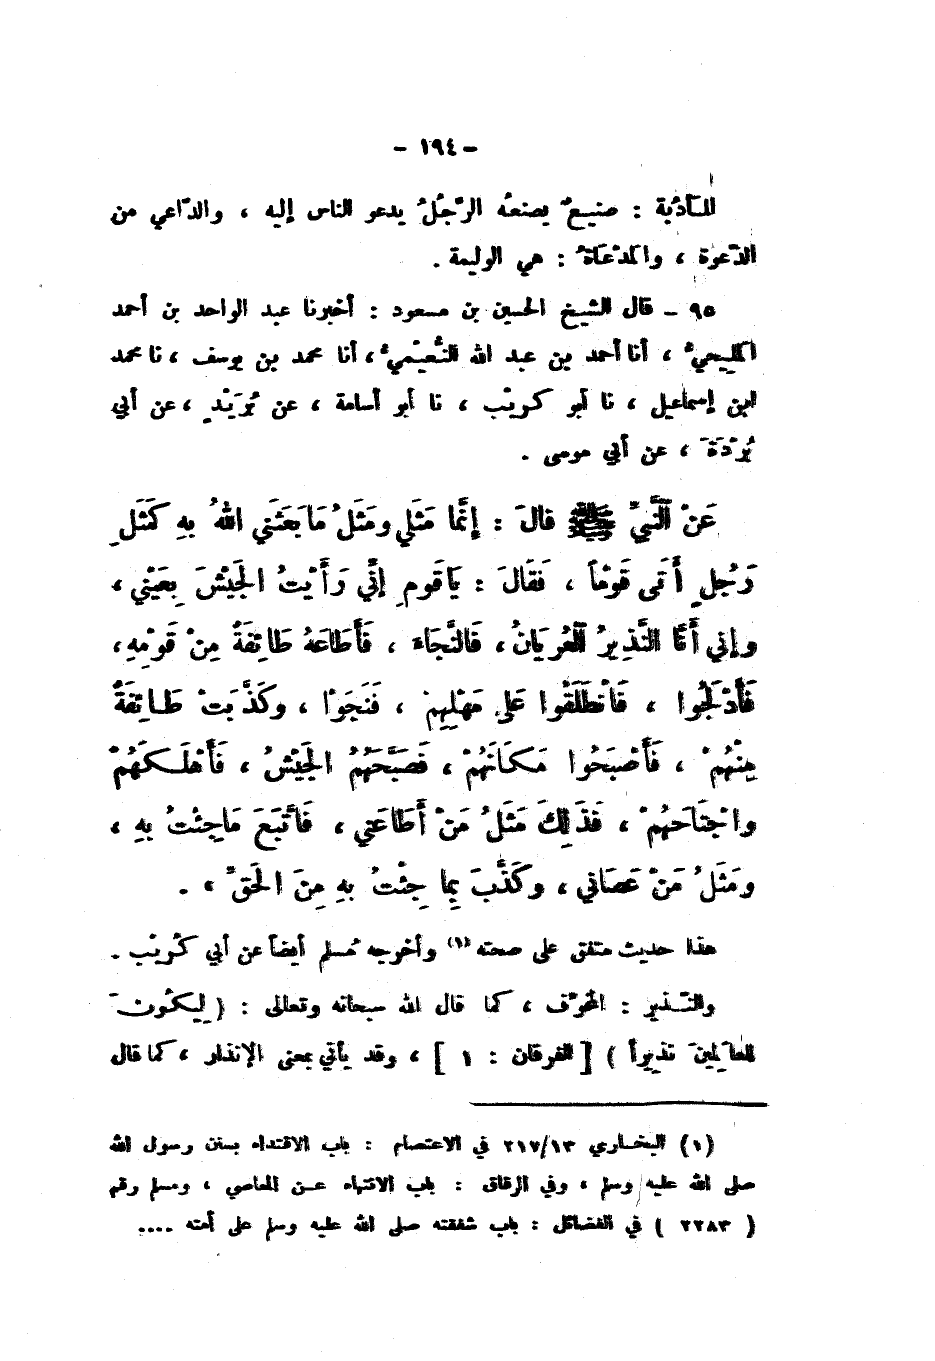 - ١٩٤ -
المأدُبة : صنيعٌ يصنعه الرّجُلُ يدعو الناس إليه ، والدّاعي من
الدّعوة ، والمدْعَاةُ : هي الوليمة .
٩٥ - قال الشيخ الحسين بن مسعود : أخبرنا عبد الواحد بن أحمد
المليحيُ ، أنا أحمد بن عبد الله النُّعَيْميُ ، أنا محمد بن يوسف ، نا محمد
ابن إسماعيل ، نا أبو كريْب ، نا أبو أسامة ، عن بُرَيْدٍ ، عن أبي
بُرْدَةَ ، عن أبي موسى .
عَنْ النَّبِيِّ ﷺ قالَ : إنَّما مَثَلي ومَثَلُ مَا بَعَثَني اللهُ بِهِ كَمَثَلِ
رَجُلٍ أَتَى قَوْماً ، فَقَالَ : يَا قَومِ إنِّي رَأَيْتُ الجَيْشَ بِعَيْنَي ،
وإني أَنَا النَّذِيرُ العُرْيَانُ ، فَالنَّجَاءَ ، فَأَطَاعَهُ طَائِفَةٌ مِنْ قَوْمِهِ ،
فَأَدْلَجُوا ، فَانْطَلَقُوا عَلى مَهْلِهِمْ ، فَنَجَوْا ، وكَذَّبَتْ طَائِفَةٌ
مِنْهُمْ ، فَأَصْبَحُوا مَكَانَهُمْ ، فَصَبَّحَهُمُ الجَيْشُ ، فَأَهْلَكَهُمْ
واجْتَاحَهُمْ ، فَذَلِكَ مَثَلُ مَنْ أَطَاعَني ، فَاتَّبَعَ مَا جِئْتُ بِهِ ،
ومَثَلُ مَنْ عَصَاني ، وكَذَّبَ بِمَا جِئْتُ بِهِ مِنَ الحَقِّ » .
هذا حديث متفق على صحته (١) وأخرجه مُسلم أيضاً عن أبي كُرَيْب .
والنّذير : المخوّف ، كما قال الله سبحانه وتعالى : ( لِيَكُونَ
للعَالمِينَ نَذِيراً ) [ الفرقان : ١ ] ، وقد يأتي بمعنى الإنذار ، كما قال
(١) البخاري ٢١٧/١٣ في الاعتصام : باب الاقتداء بسنن رسول الله
صلى الله عليه وسلم ، وفي الرقاق : باب الانتهاء عن المعاصي ، ومسلم رقم
( ٢٢٨٣ ) في الفضائل : باب شفقته صلى الله عليه وسلم على أمته ....